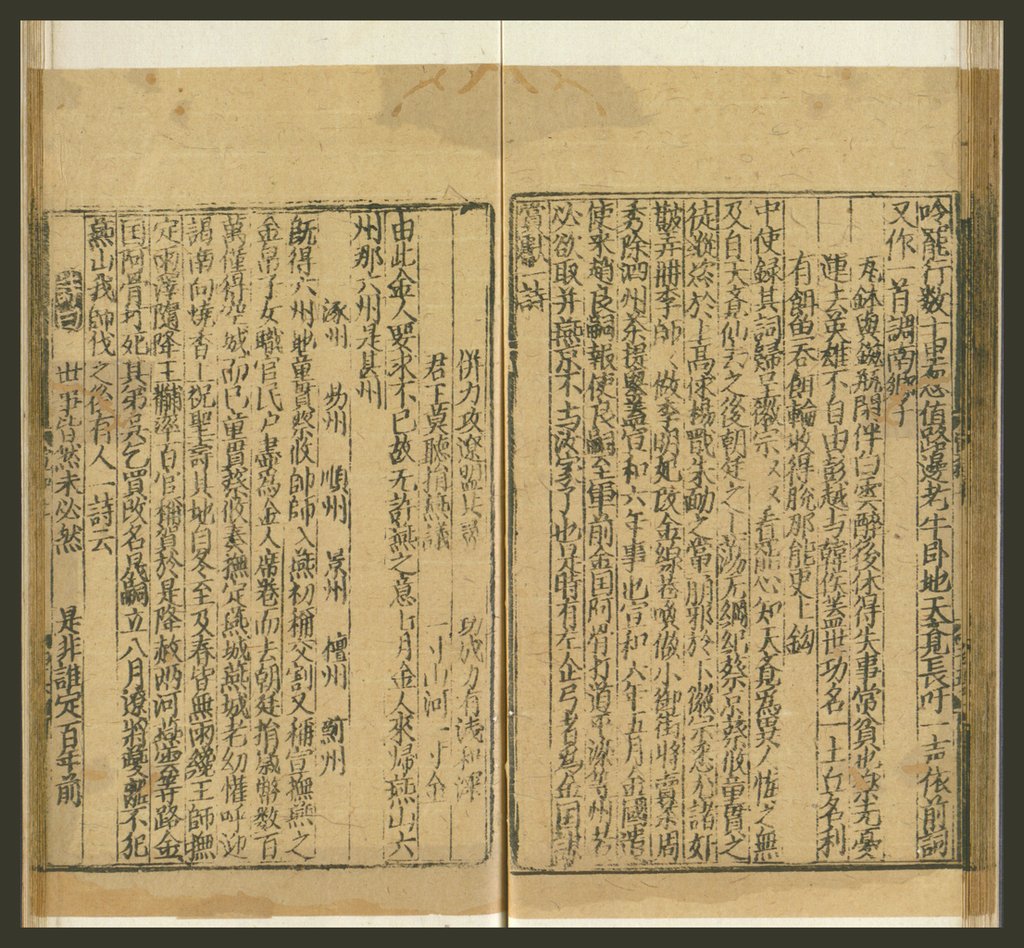 吟罷行数十步忽值路邊老牛卧地天竟長吁一声依前詞
又作一首調南鄉子
瓦鉢與磁甌閑伴白雲醉後休得失事常貧也 先憂
運去英雄不自由彭越与韓侯盖世功名一土丘名利
有餌魚吞餌輪收得脫那能更上鈎
中使録其詞歸呈徽宗 看 心知天竟為異人悔之無
及自天竟仙去之後朝廷之上蕩无綱紀蔡京蔡攸童貫之
徒縱恣於上高俅楊戩朱勔之常朋邪於下徽宗悉允諸奸
敝弃冊李師 做李明妃改金線巷喚做小御街將賣茶周
秀除泗州茶提舉盖宣和六年事也宣和六年五月金國遣
使來趙良嗣報使良嗣至軍前金国阿骨打道平灤等州若
必欲取并燕京不与汝家了也是時有左企弓者為金国謀
賞 一詩
併力攻遼盟共 功成力有浅和深
君王莫聽捐燕議 一寸山河一寸金
由此金人要求不已故无許燕之意七月金人來歸燕山六
州那六州是甚州
涿州 易州 順州 景州 檀州 薊州
既得六州地童貫蔡攸帥師入燕初稱交割又稱宣撫燕之
金帛子女職官民户盡為金人席卷而去朝廷捐歲幣数百
萬僅得空城而已童貫蔡攸奏撫定燕城燕城老幼懽呼迎
謁南向燒香上祝聖壽其地自冬至及春皆無雨纔王師撫
定雨澤隨降王黼率百官稱賀於是降赦兩河燕雲等路金
国阿骨打死其弟吳乞買改名晟嗣立八月遼將夔離不犯
燕山我師伐之後有人一詩云
詩曰 世事皆然未必然 是非誰定百年前